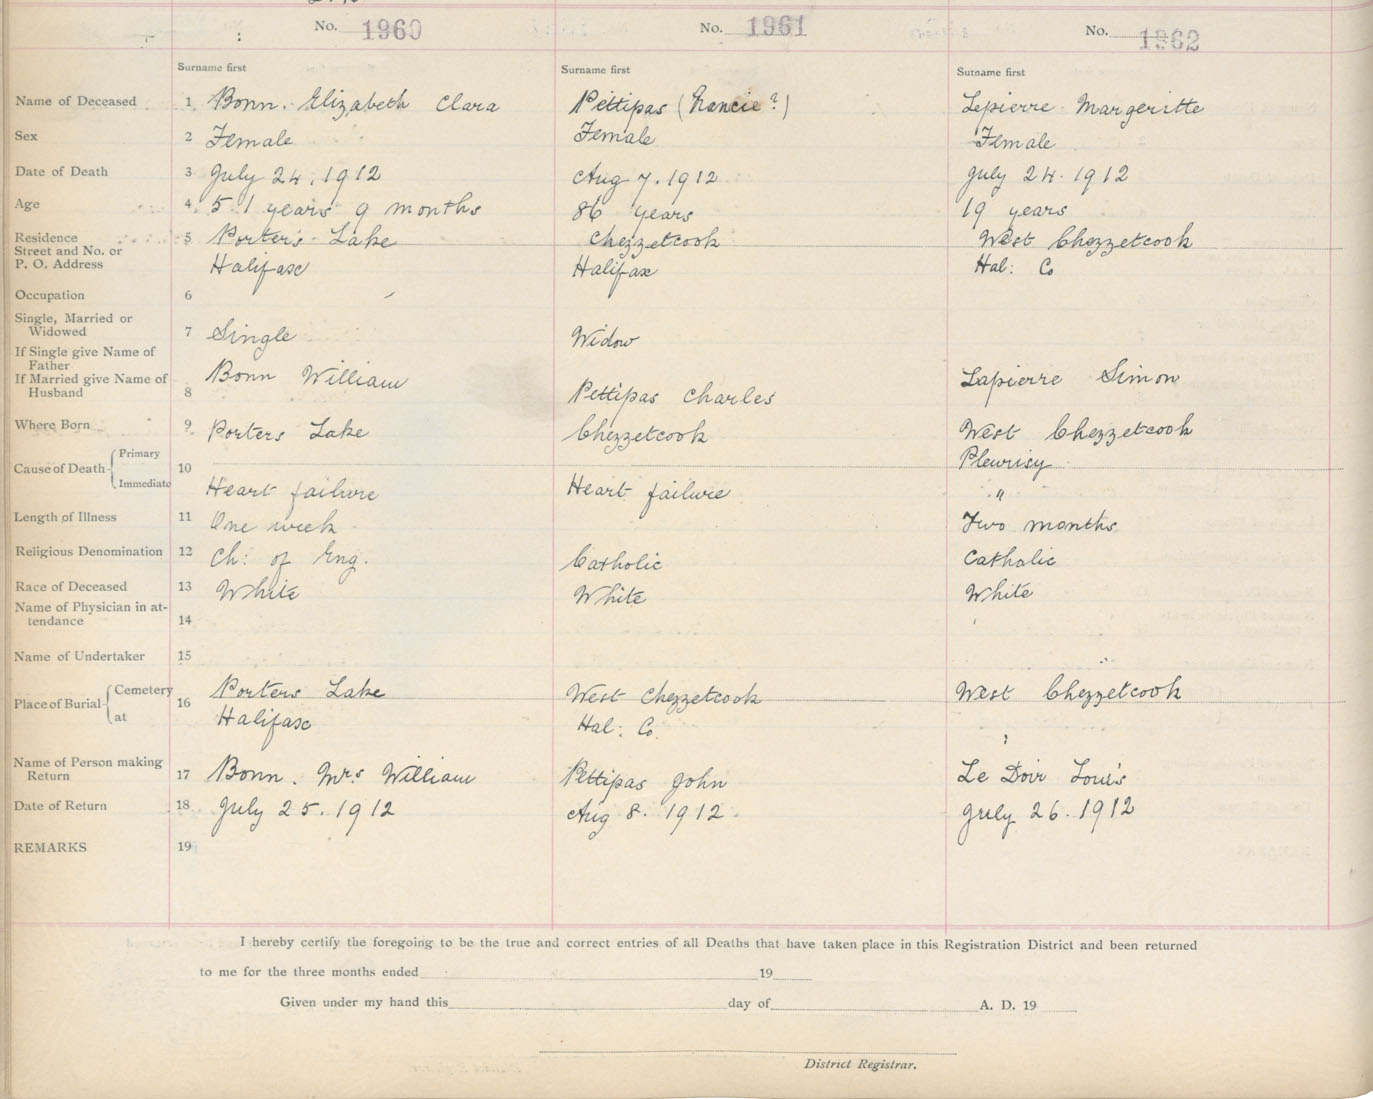 No. 1960
No. 1961
No. 1962
Surname first
Surname first
Surname first
Name of Deceased 1 Bonn. Elizabeth Clara
Pettipas (Nancie?)
Lepierre Margeritte
Sex 2 Female
Female
Female
Date of Death 3 July 24, 1912
Aug 7. 1912
July 24. 1912
Age 4 51 years 9 months
86 years
19 years
Residence
Street and No. or
P. O. Address
5 Porter's Lake
Halifax
Chezzetcook
Halifax
West Chezzetcook
Hal: Co
Occupation 6
Single, Married or
Widowed
7 Single
Widow
If Single give Name of
Father
If Married give Name of
Husband
8 Bonn William
Pettipas Charles
Lapierre Simon
Where Born 9 Porters Lake
Chezzetcook
West Chezzetcook
Cause of Death Primary
Immediate
10
Heart failure
Heart failure
Pleurisy
"
Length of Illness 11 One week
Two months
Religious Denomination 12 Ch: of Eng.
Catholic
Catholic
Race of Deceased 13 White
White
White
Name of Physician in at-
tendance
14
Name of Undertaker 15
Place of Burial Cemetery
at
16 Porters Lake
Halifax
West Chezzetcook
Hal: Co.
West Chezzetcook
Name of Person making
Return
17 Bonn. Mrs William
Pettipas John
Le Doir Louis
Date of Return 18 July 25. 1912
Aug 8. 1912
July 26. 1912
REMARKS 19
I hereby certify the foregoing to be the true and correct entries of all Deaths that have taken place in this Registration District and been returned
to me for the three months ended 19
Given under my hand this day of A. D. 19
District Registrar.